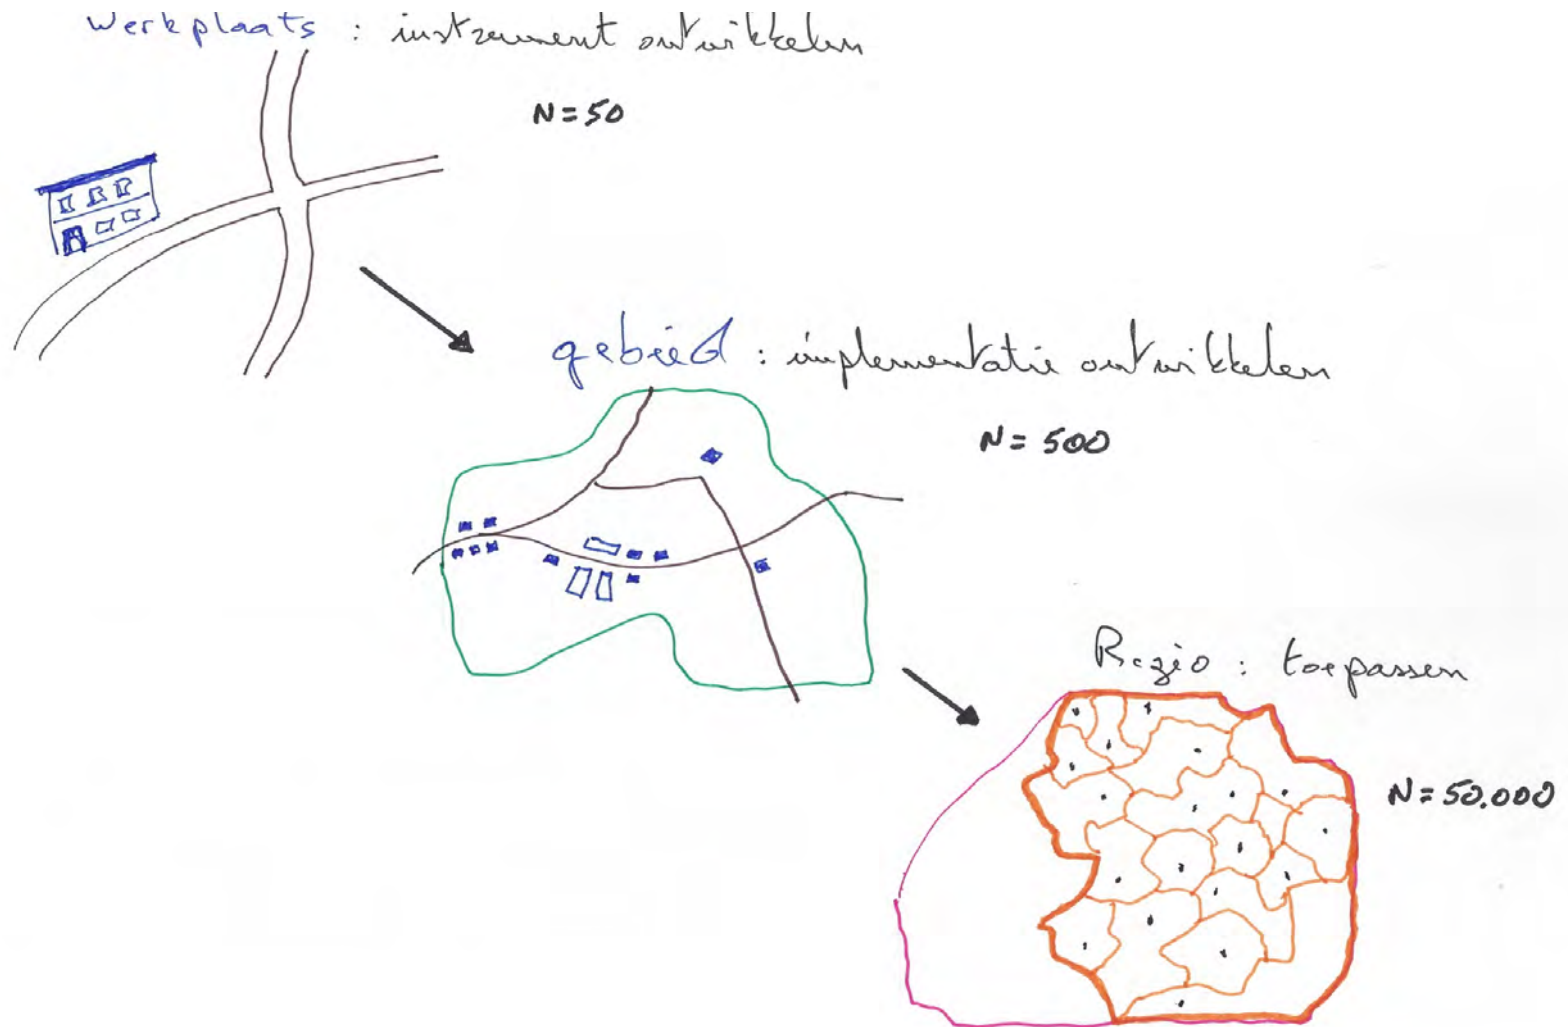 werkplaats : instrument ontwikkelen
N = 50
gebied : implementatie ontwikkelen
N = 500
Regio : toepassen
N = 50.000